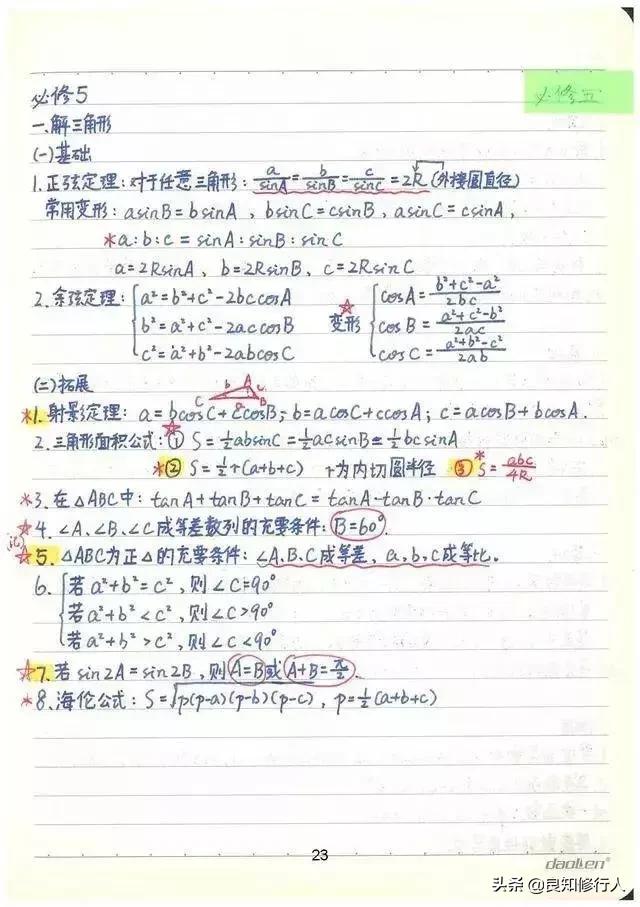 必修五
必修5
一、解三角形
(一)基础
1.正弦定理:对于任意三角形: a/sinA = b/sinB = c/sinC = 2R (外接圆直径)
常用变形: asinB=bsinA, bsinC=csinB, asinC=csinA,
*a:b:c = sinA:sinB:sinC
a=2RsinA, b=2RsinB, c=2RsinC
2.余弦定理: { a²=b²+c²-2bccosA 变形 { cosA = (b²+c²-a²)/2bc
b²=a²+c²-2accosB cosB = (a²+c²-b²)/2ac
c²=a²+b²-2abcosC cosC = (a²+b²-c²)/2ab
(二)拓展
b A c
C a B
*1.射影定理: a=bcosC+ccosB; b=acosC+ccosA; c=acosB+bcosA.
2.三角形面积公式: ☆① S=½absinC=½acsinB=½bcsinA
*② S=½r(a+b+c) r为内切圆半径 ③* S=abc/4R
*3.在△ABC中: tanA+tanB+tanC=tanA·tanB·tanC
☆4.∠A、∠B、∠C成等差数列的充要条件: B=60°.
记
☆5.△ABC为正△的充要条件: ∠A,B,C成等差, a,b,c成等比.
6. { 若a²+b²=c²,则∠C=90°
若a²+b²<c²,则∠C>90°
若a²+b²>c²,则∠C<90°
☆7.若sin2A=sin2B,则A=B或A+B=π/2.
*8.海伦公式: S=√p(p-a)(p-b)(p-c), p=½(a+b+c)
23
daolen®
头条 @良知修行人